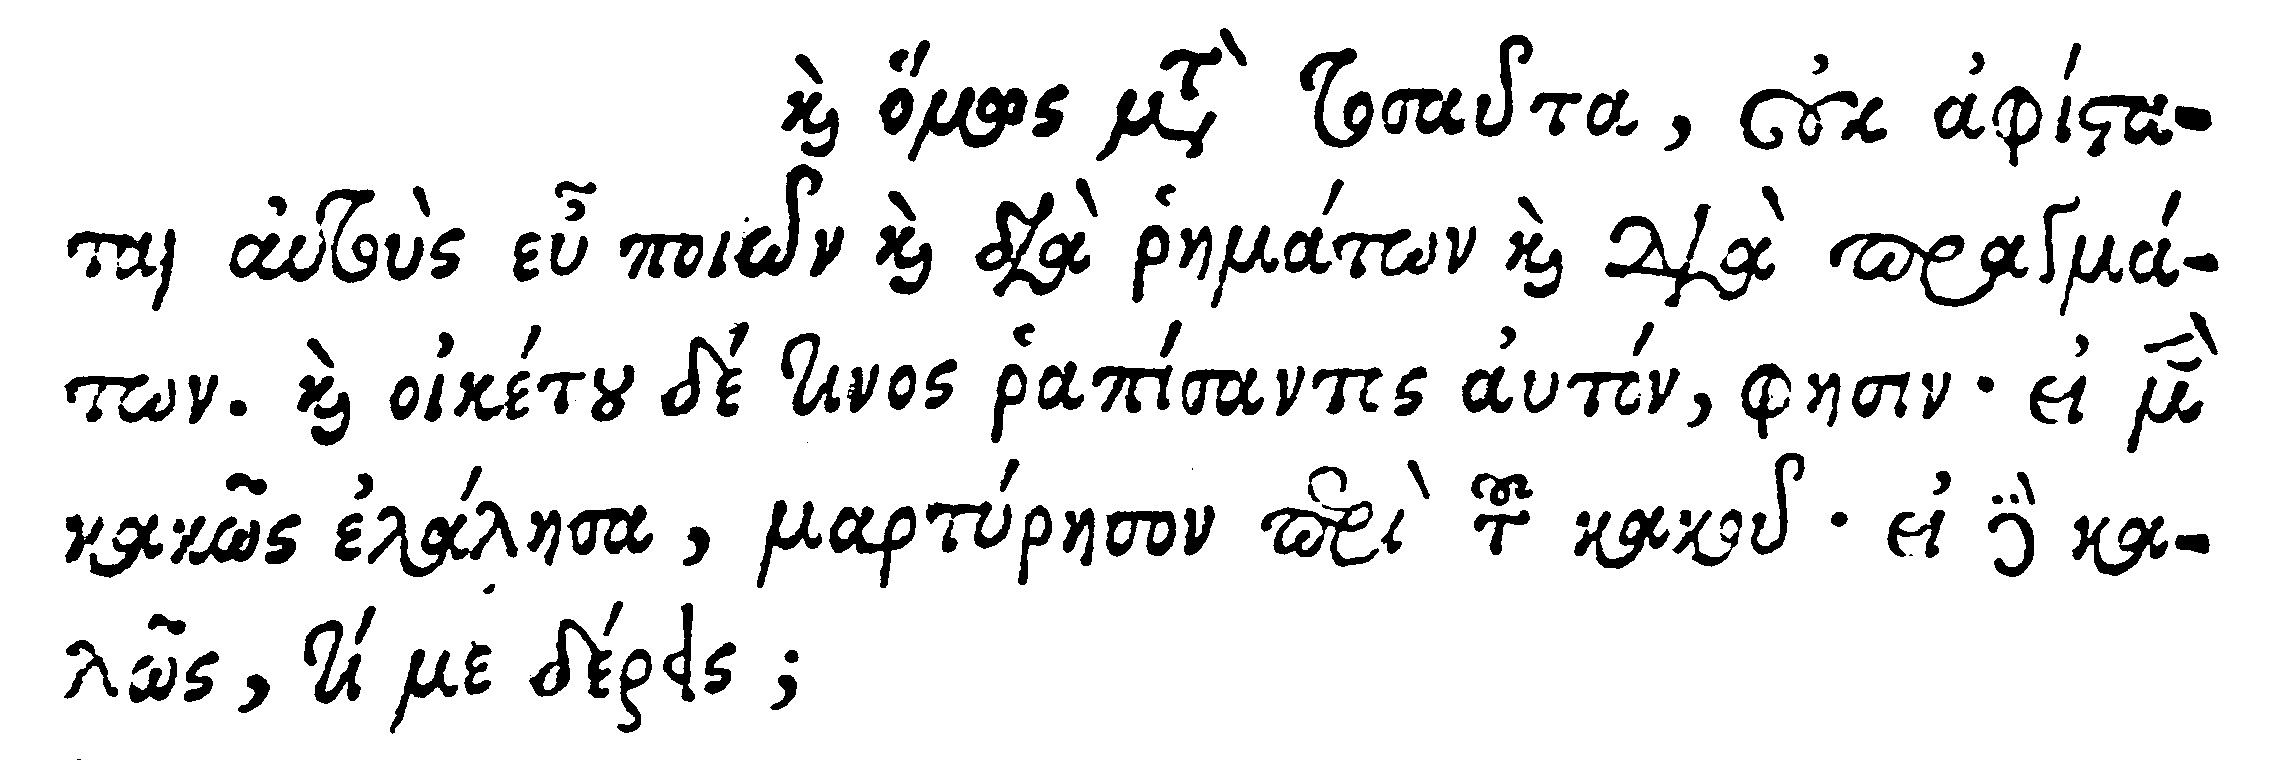 καὶ ὅμως μετὰ τοσαῦτα, οὐκ ἀφίστα-
ται αὐτοὺς εὖ ποιῶν καὶ διὰ ῥημάτων καὶ διὰ πραγμά-
των. καὶ οἰκέτου δέ τινος ῥαπίσαντος αὐτόν, φησιν· εἰ μὲν
κακῶς ἐλάλησα, μαρτύρησον περὶ τοῦ κακοῦ· εἰ δὲ κα-
λῶς, τί με δέρεις;